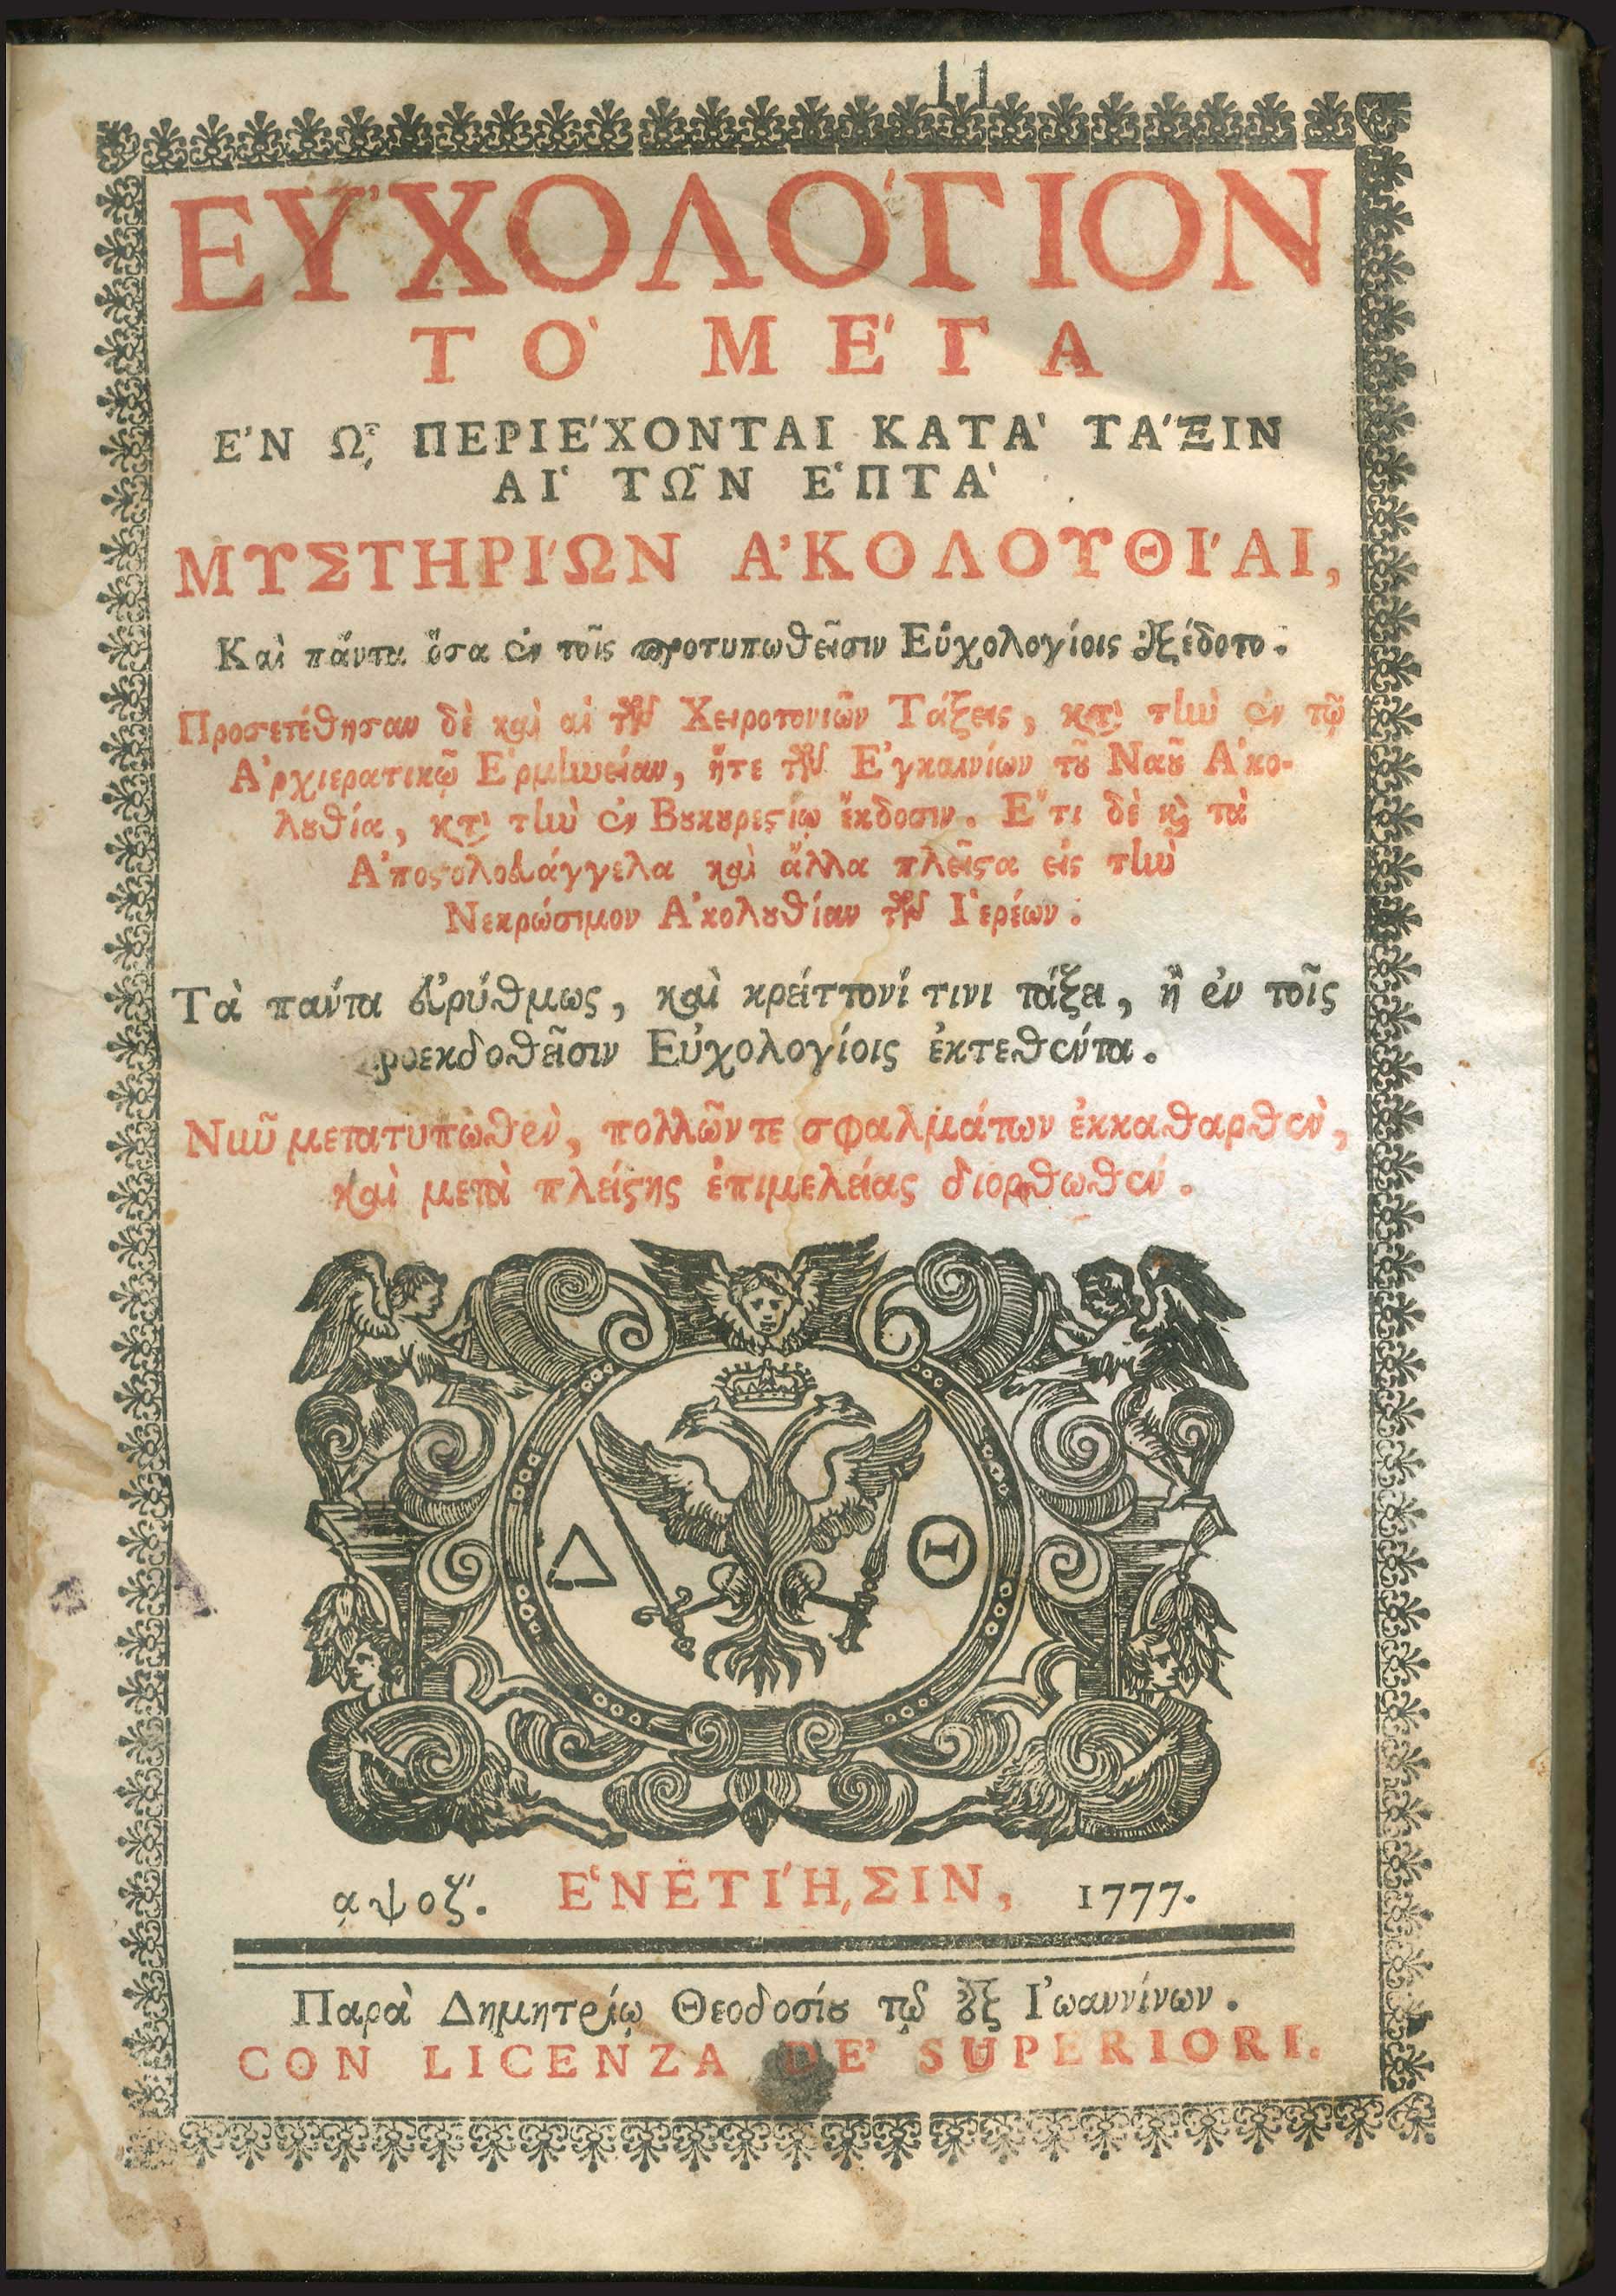 11
ΕΥ᾿ΧΟΛΟ΄ΓΙΟΝ
ΤΟ` ΜΕ΄ΓΑ
Ε᾿Ν ῼ῟ ΠΕΡΙΕ΄ΧΟΝΤΑΙ ΚΑΤΑ` ΤΑ΄ΞΙΝ
ΑΙ῾ ΤΩ῀Ν Ε῾ΠΤΑ`
ΜΥΣΤΗΡΙ΄ΩΝ Α᾿ΚΟΛΟΥΘΙ΄ΑΙ,
Καὶ πάντα ὅσα ἐν τοῖς προτυπωθεῖσιν Εὐχολογίοις ἐξέδοτο.
Προσετέθησαν δὲ καὶ αἱ τῶν Χειροτονιῶν Τάξεις, κτ̀ τὴν ἐν τῷ
Ἀρχιερατικῷ Ἑρμηνείαν, ἥτε τῶν Ἐγκαινίων τȣ͂ Ναȣ͂ Ἀκο-
λȣθία, κτ̀ τὴν ἐν Βȣκȣρεϛίῳ ἔκδοσιν. Ἔτι δὲ ϗ̀ τὰ
Ἀποϛολοευάγγελα καὶ ἄλλα πλεῖϛα εἰς τὴν
Νεκρώσιμον Ἀκολȣθίαν τῶν Ἱερέων.
Τὰ πάντα εὐρύθμως, καὶ κρείττονί τινι τάξει, ἢ ἐν τοῖς
προεκδοθεῖσιν Εὐχολογίοις ἐκτεθέντα.
Νῦν μετατυπωθὲν, πολλῶν τε σφαλμάτων ἐκκαθαρθὲν,
καὶ μετὰ πλείϛης ἐπιμελείας διορθωθέν.
Δ Θ
͵αψοζ΄. Ε῾ΝΕΤΙ΄ΗͺΣΙΝ, 1777.
Παρὰ Δημητρίῳ Θεοδοσίȣ τῷ ἐξ Ἰωαννίνων.
CON LICENZA DE' SUPERIORI.